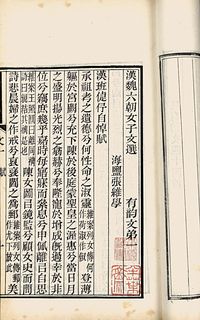 漢魏六朝女子文選
海鹽張維學
有韵文第一
漢班倢伃自悼賦
承祖考之遺德兮何性命之淑靈 登薄
軀於宮闕兮充下陳於後庭蒙聖皇之渥惠兮當日月
之盛明揚光烈之翕赫兮奉隆寵於增成既過幸於非
位兮竊庶幾乎嘉時每寤寐而絫息兮申佩離以自思
陳女圖以鏡監兮顧女史而問
詩悲晨婦之作戒兮哀褒閻之爲郵 美